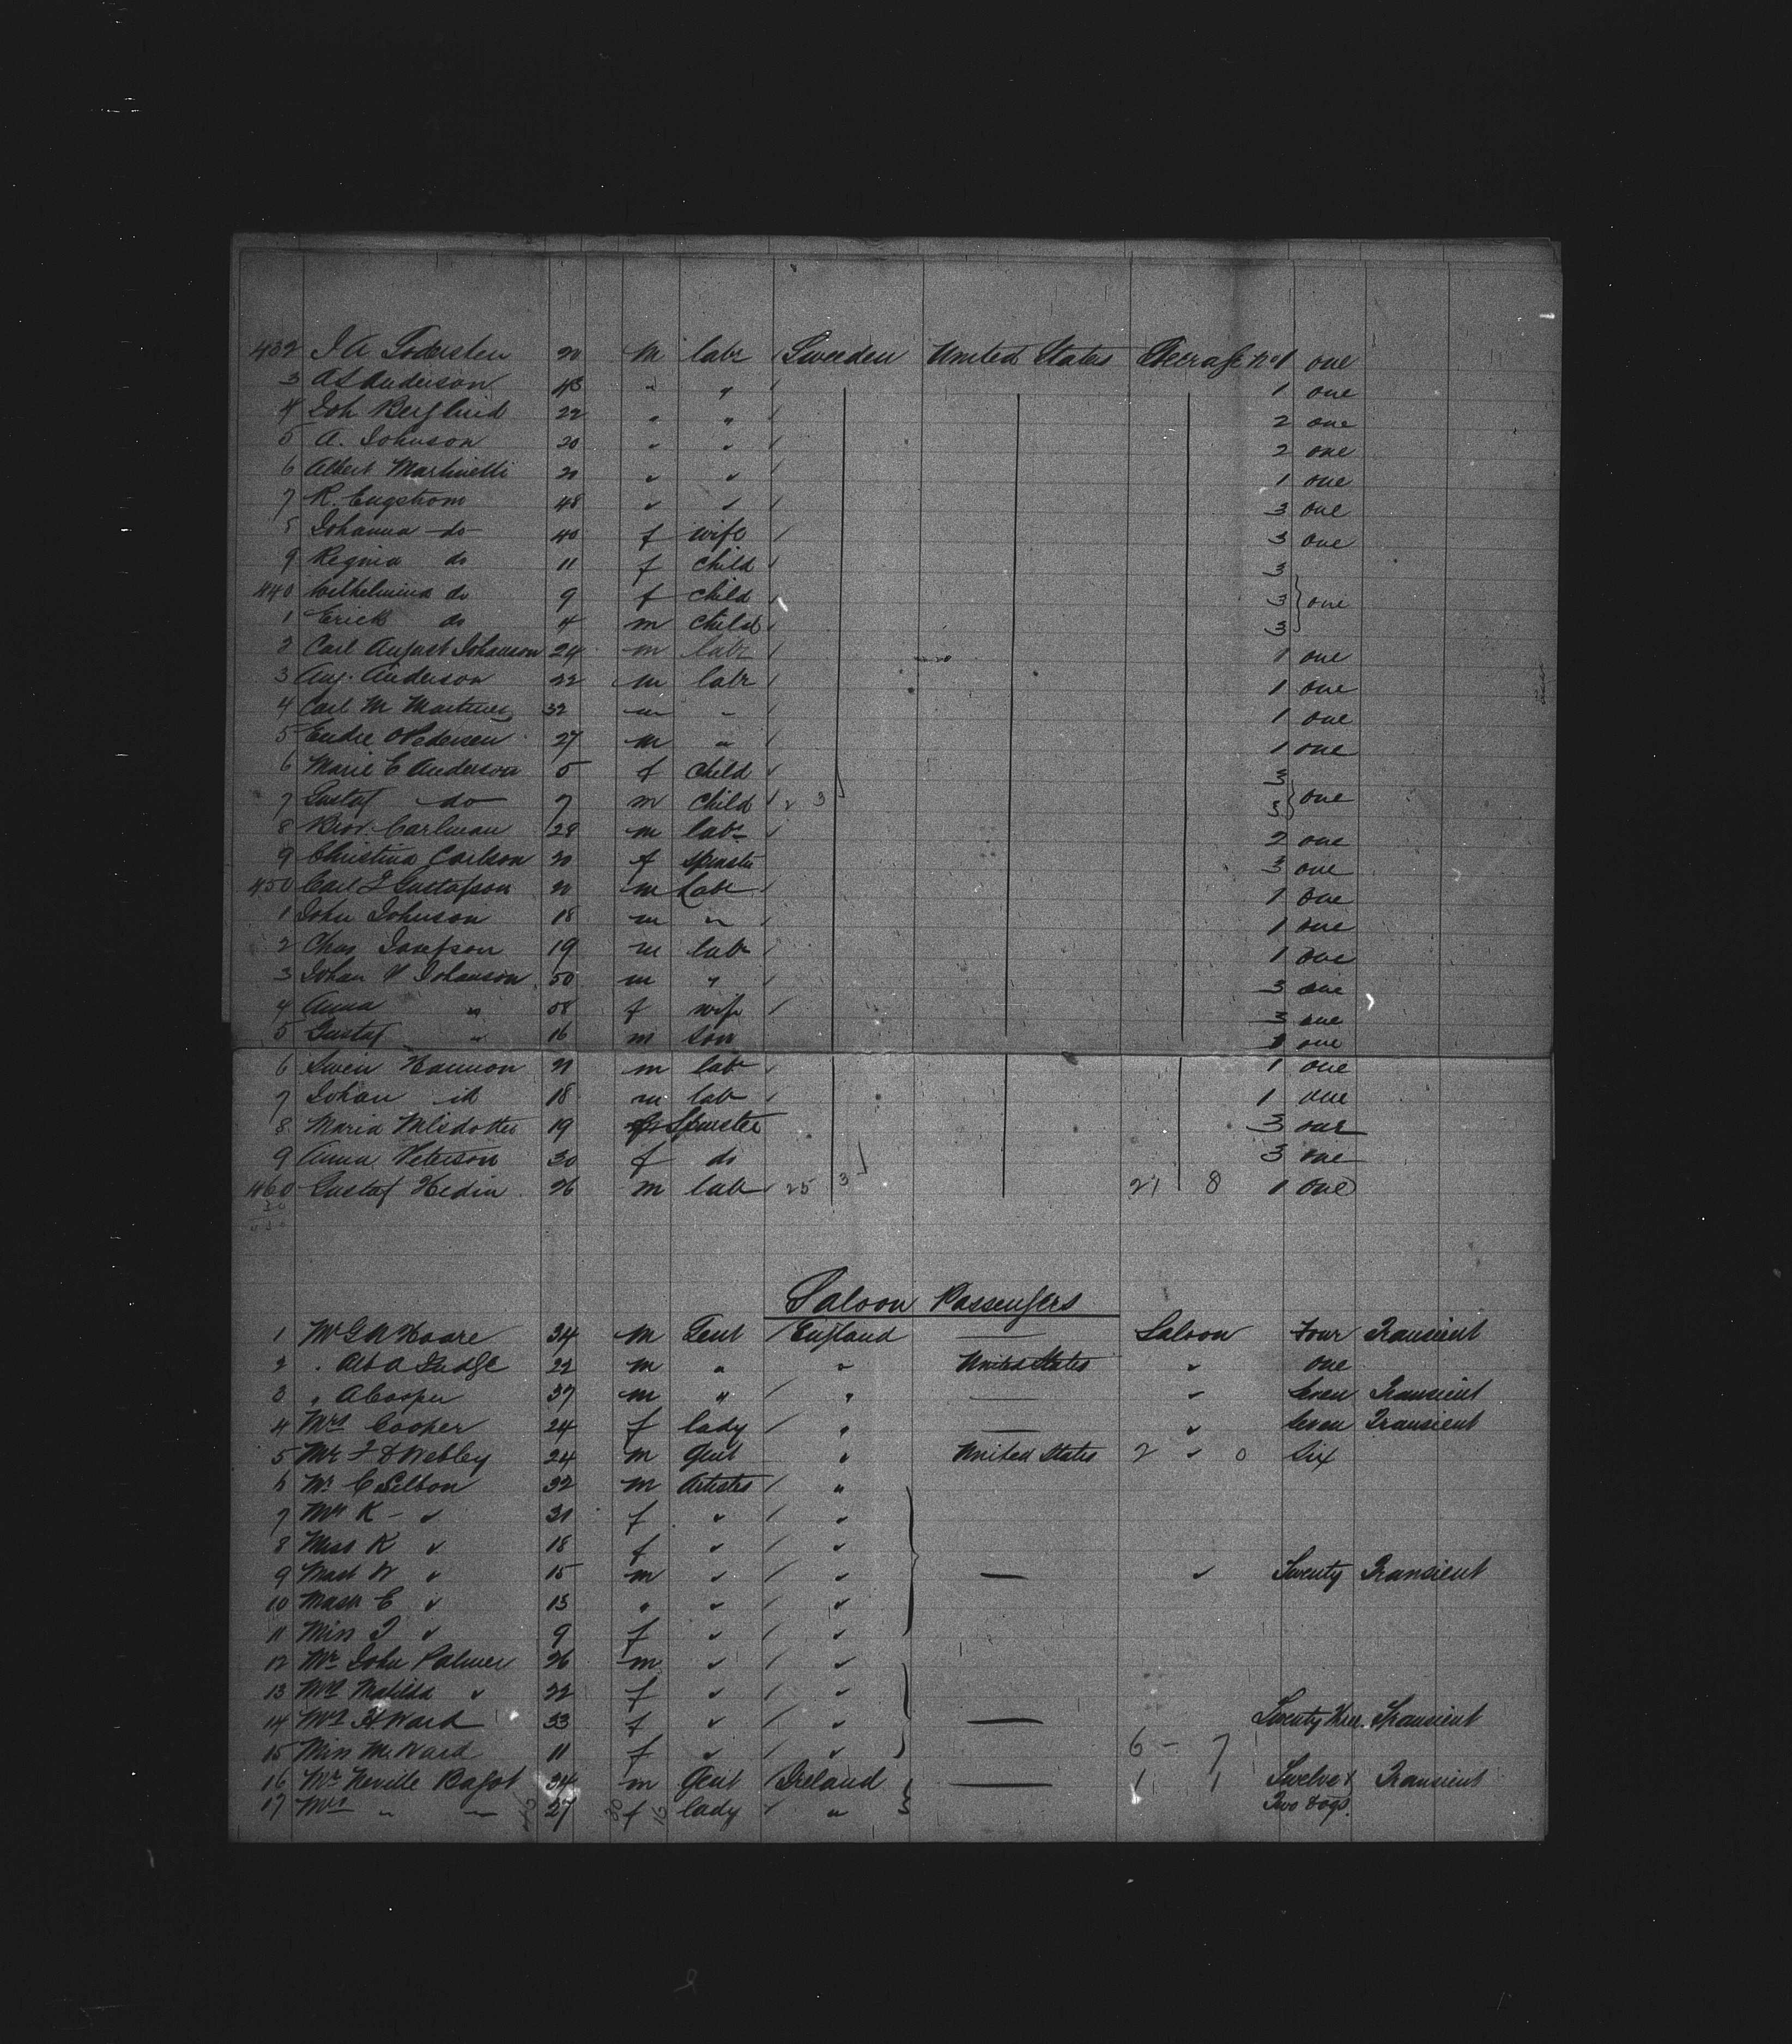 432 J A Sodersten 20 m labr / Sweden United States Steerage No 1 one
3 A L Anderson 43 " " / 1 one
4 Joh Berglind 22 " " / 2 one
5 A. Johnson 20 " " / 2 one
6 Albert Martinelli 21 " " / 1 one
7 K. Engstrom 48 " " / 3 one
8 Johanna do 40 f wife / 3 one
9 Regina do 11 f child / 3
440 Wilhelmina do 9 f child 3 } one
1 Erick do 4 m child / 3
2 Carl August Johanson 24 m labr / 1 one
3 Aug. Anderson 22 m labr / 1 one
4 Carl M 32 m " / 1 one
5 Endre Pedersen 27 m " / 1 one
6 Marie C Anderson 5 f child / 3
7 Gustaf do 7 m child / 2 3 3 } one
8 Carlman 28 m labr / 2 one
9 Christina Carlson 20 f Spinster 3 one
450 Carl J Gustafson 20 m labr / 1 one
1 John Johnson 18 m " / 1 one
2 Chas Josefson 19 m labr / 1 one
3 Johan P Johanson 50 m " / 3 one
4 Anna " 58 f wife / 3 one
5 Gustaf " 16 m son one
6 Swen Hannon 21 m labr / 1 one
7 Johan id 18 m labr / 1 one
8 Maria 19 f Spinster 3 one
9 Anna Peterson 30 f do 3 one
460 Gustaf Hedin 26 m labr / 25 3 21 8 1 one
Saloon Passengers
1 Mr G W Hoare 34 m Gent / England — Saloon Four Transient
2 " Alb A Judge 22 m " " United States " one
3 " A Cooper 37 m " / " — " Seven Transient
4 Mrs Cooper 24 f lady / " — " Seven Transient
5 Mr F D Webley 24 m gent " United States 2 " 0 Six
6 Mr C Selbon 32 m Artistes / "
7 Mrs K " 31 f " / "
8 Miss K " 18 f " / "
9 Mast W " 15 m " / " — " Twenty Transient
10 Mast C " 13 " " / "
11 Miss J " 9 f " / "
12 Mr John Palmer 26 m " / "
13 Mrs Matilda " 22 f " / "
14 Mrs H Ward 33 f " / " — Twenty three Transient
15 Miss M. Ward 11 f " / " 6 - 7
16 Mr Neville Bagot 34 m Gent / Ireland — 1 1 Twelve & Transient
17 Mrs " " 27 f lady / " Two dogs.